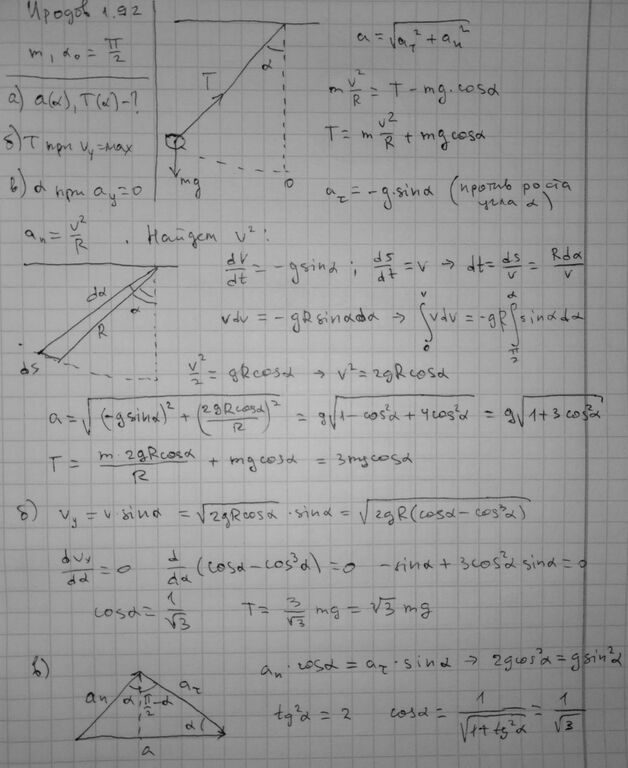 Иродов 1.92
m, α₀ = π/2
а) a(α), T(α) - ?
б) T при v_y = max
в) α при a_y = 0
T
α
mg
0
a = √(a_τ² + a_n²)
m v²/R = T - mg·cosα
T = m v²/R + mg cosα
a_τ = -g·sinα (против роста угла α)
a_n = v²/R . Найдем v²:
dα
α
R
ds
dv/dt = -g sinα ; ds/dt = v → dt = ds/v = Rdα/v
vdv = -gR sinα dα → ∫₀^v vdv = -gR ∫_{π/2}^α sinα dα
v²/2 = gR cosα → v² = 2gR cosα
a = √((-g sinα)² + (2gR cosα/R)²) = g√(1 - cos²α + 4cos²α) = g√(1 + 3cos²α)
T = m·2gR cosα/R + mg cosα = 3mg cosα
б) v_y = v·sinα = √(2gR cosα)·sinα = √(2gR(cosα - cos³α))
dv_y/dα = 0 d/dα (cosα - cos³α) = 0 -sinα + 3cos²α sinα = 0
cosα = 1/√3 T = 3/√3 mg = √3 mg
в)
a_n
α
π/2 - α
a_τ
α
a
a_n·cosα = a_τ·sinα → 2g cos²α = g sin²α
tg²α = 2 cosα = 1/√(1 + tg²α) = 1/√3